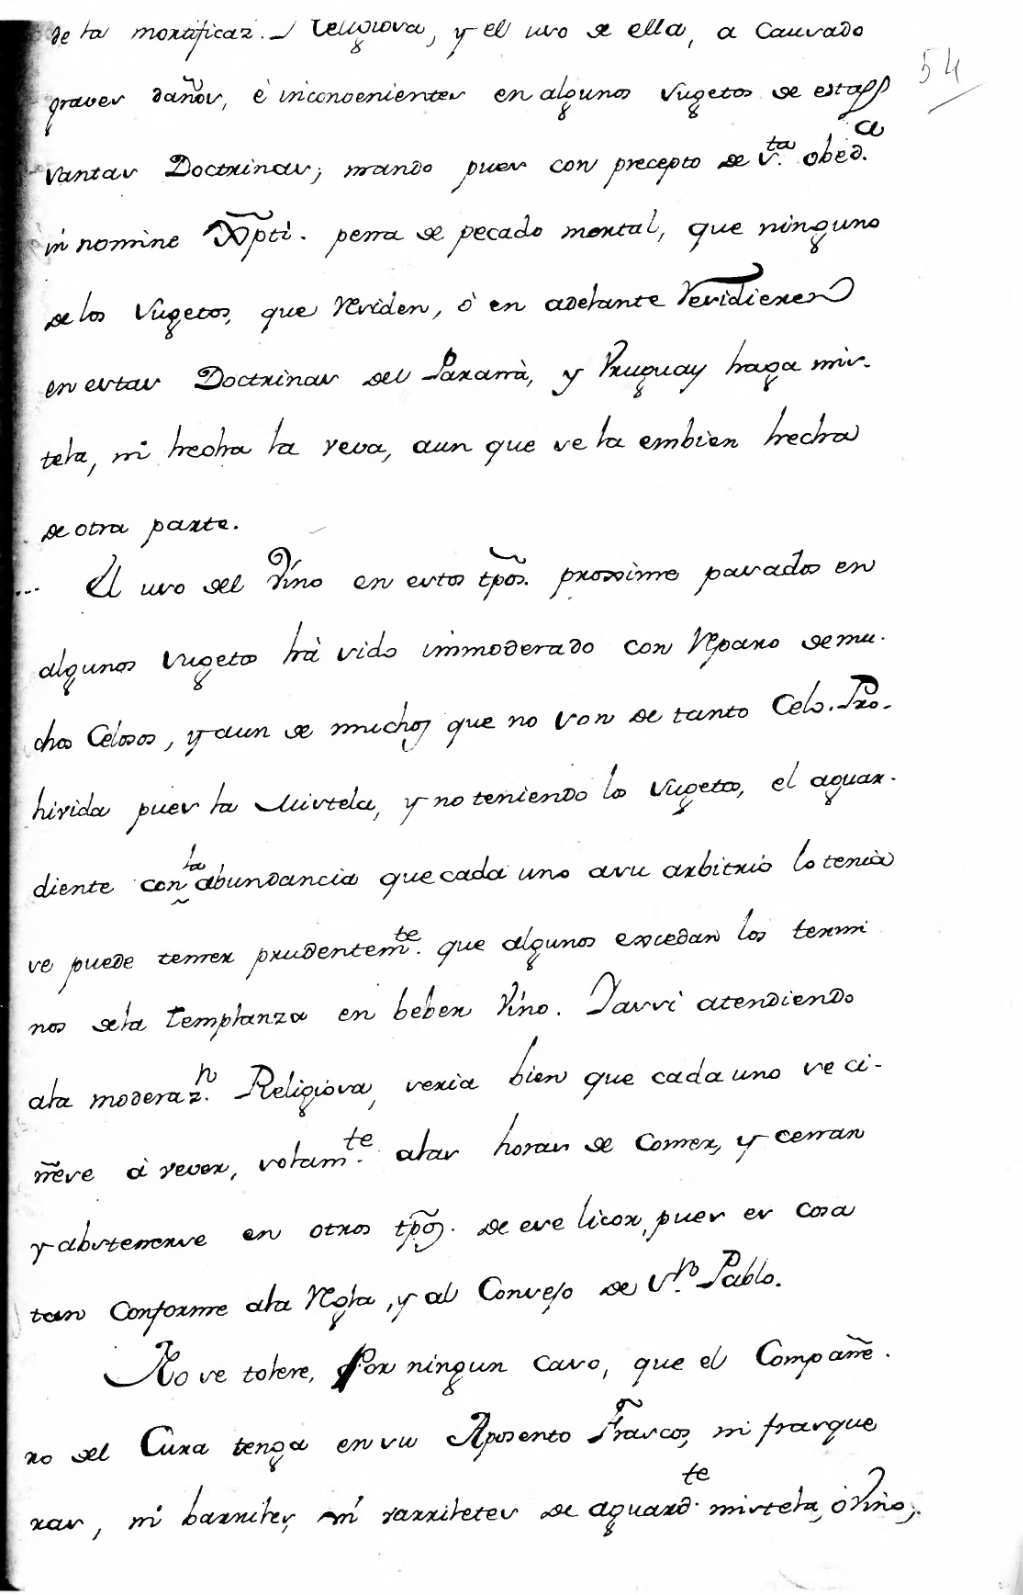 de la mortificaz.n Religiosa, y el uso de ella, a causado
graves daños, è inconvenientes en algunos sugetos de estas
santas Doctrinas; mando pues con precepto de s.ta obed.a
in nomine Xpti. pena de pecado mortal, que ninguno
de los sugetos, que residen, ò en adelante residieren
en estas Doctrinas del Paranà, y Vruguay haga mis-
tela, ni hecha la rese, aun que se la embien hecha
de otra parte.
El uso del Vino en estos tpõs. proximo pasados en
algunos sugetos hà sido immoderado con reparo de mu-
chos Celosos, y aun de muchos que no son de tanto Celo. Pro-
hivida pues la Mistela, y no teniendo los sugetos, el aguar-
diente con la abundancia que cada uno asu arbitrio lo tenia
se puede temer prudentem.te que algunos excedan los termi
nos dela templanza en beber Vino. Yassi atendiendo
ala moderaz.n Religiosa, seria bien que cada uno se ci-
ñese à bever, solam.te alas horas de comer, y cenar
y abstenerse en otros tpõs. de ese licor, pues es cosa
tan conforme ala regla, y al Consejo de S.n Pablo.
No se tolere, por ningun caso, que el Compañe-
ro del Cura tenga en su Aposento Frascos, ni frasque
ras, ni barriles, ni barriletes de aguard.te mistela, ò Vino,
54